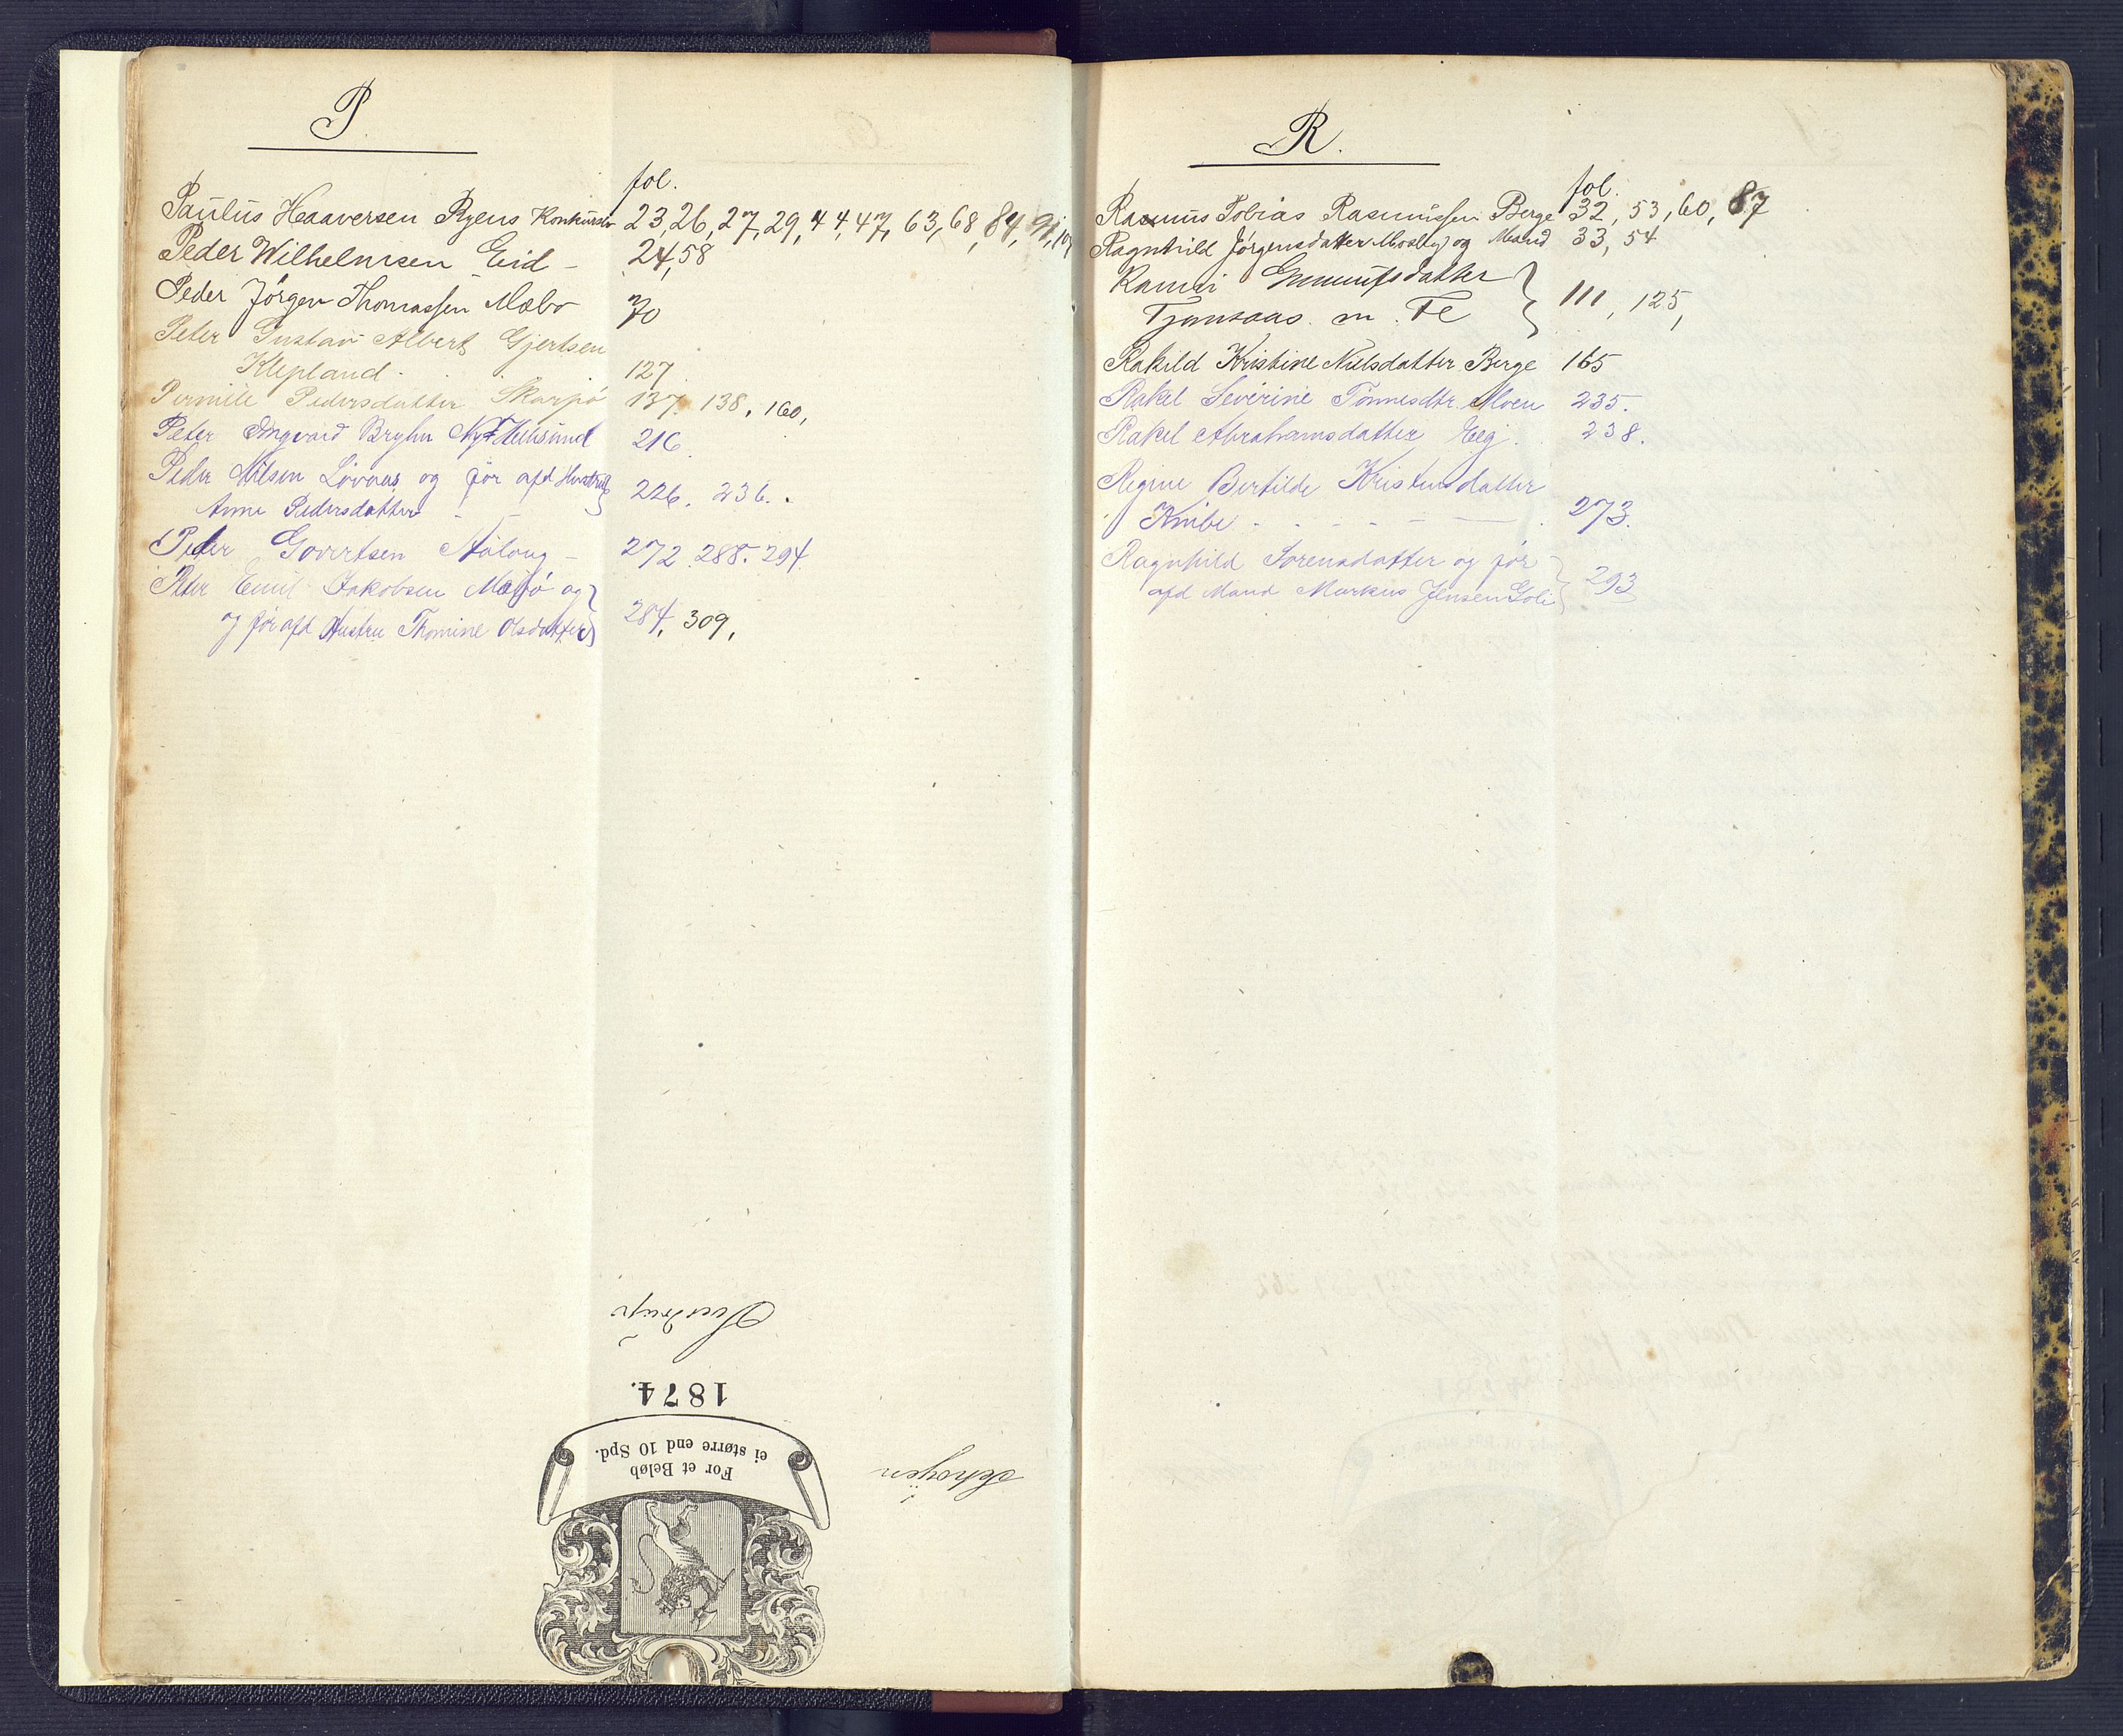 P.
fol.
Paulus Haaversen Ryens Konkursbo 23, 26, 27, 29, 44, 47, 63, 68, 84, 91, 107
Peder Wilhelmsen Eid – 24, 58
Peder Jörgen Thomassen Mæbø 70
Peter Gustav Albert Gjertsen
Klepland 127
Pernille Pedersdatter Skarpö 137. 138, 160,
Peter Ingvard Bryhn Ny Hellesund 216.
Peder Nilsen Lövaas og för afd Hustru
Anne Pedersdatter 226. 236.
Peder Govertsen Aalong – 272. 288. 294
Peter Emil Jakobsen og
og för afd Hustru Thomine Olsdatter 284, 309,
Sverdrup
1874.
For et Beløb
ei større end 10 Spd.
Schrøyen
R.
fol.
Rasmus Tobias Rasmussen Berge 32, 53, 60, 87
Ragnhild Jörgensdatter Mosby og Mand 33, 54
Ranvei Gunnufsdatter
m. Fl 111, 125,
Rakild Kristine Nielsdatter Berge 165
Rakel Severine Tönnesdtr. Moen 235.
Rakel Abrahamsdatter Eeg. 238.
Regine Bertilde Kristensdatter
Knibe 273.
Ragnhild Sorensdatter og för
afd Mand Markus Jensen Goli 293